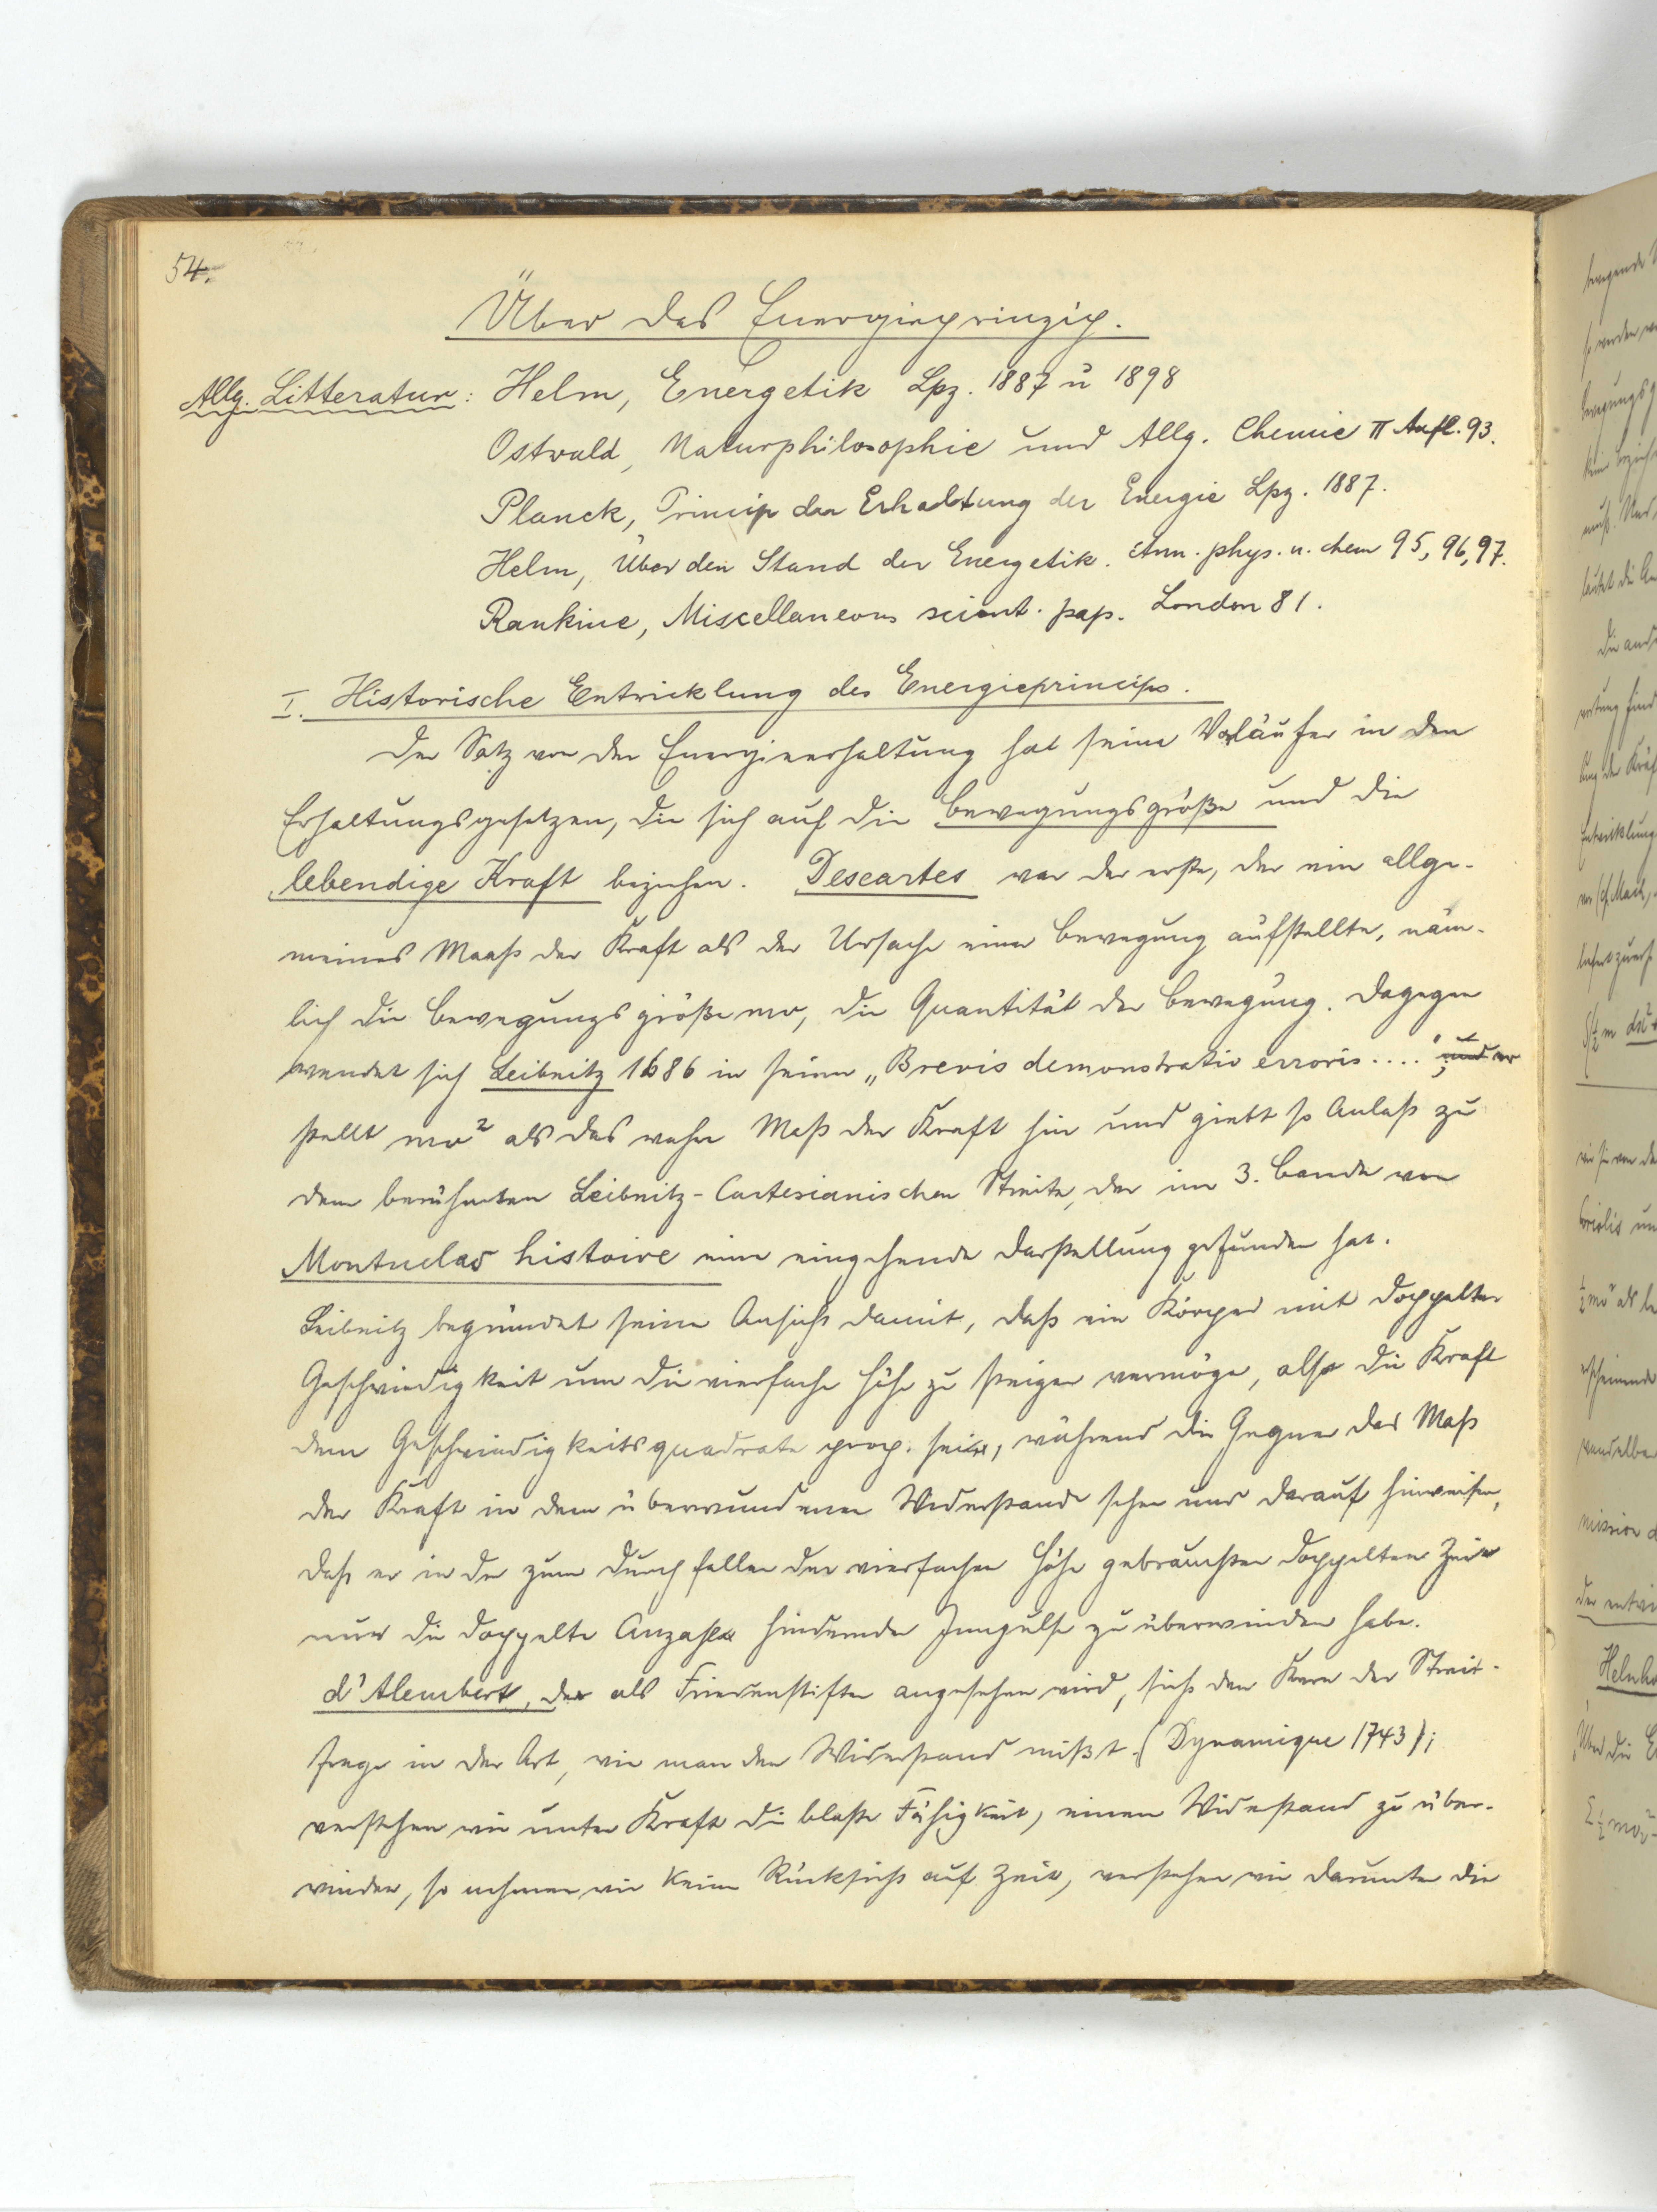 54.
Über das Energieprinzip.
Allg. Litteratur: Helm, Energetik Lpz. 1887 u 1898
Ostwald, Naturphilosophie und Allg. Chemie II Aufl. 93.
Planck, Princip der Erhaltung der Energie Lpz. 1887.
Helm, Über den Stand der Energetik. Ann. phys. u. chem 95, 96, 97.
Rankine, Miscellaneous scient. pap. London 81.
I. Historische Entwicklung des Energieprincips.
Der Satz von der Energieerhaltung hat seine Vorläufer in den
Erhaltungsgesetzen, die sich auf die Bewegungsgröße und die
lebendige Kraft beziehen. Descartes war der erste, der ein allge-
meines Maaß der Kraft als der Ursache einer Bewegung aufstellte, näm-
lich die Bewegungsgröße mv, die Quantität der Bewegung. Dagegen
wendet sich Leibnitz 1686 in seiner „Brevis demonstratio erroris....“; und er
stellt mv² als das wahre Maß der Kraft hin und giebt so Anlaß zu
dem berühmten Leibnitz-Cartesianischen Streite, der im 3. Bande von
Montuclas histoire eine eingehende Darstellung gefunden hat.
Leibnitz begründet seine Ansicht damit, daß ein Körper mit doppelter
Geschwindigkeit um die vierfache Höhe zu steigen vermöge, also die Kraft
dem Geschwindigkeitsquadrate prop. sei, während die Gegner das Maß
der Kraft in dem überwundenen Widerstande sehen und darauf hinweisen,
daß er in der zum Durchfallen der vierfachen Höhe gebrauchten doppelten Zeit
nur die doppelte Anzahl hindernder Impulse zu überwinden habe.
d'Alembert, der als Friedenstifter angesehen wird, sieht den Kern der Streit-
frage in der Art, wie man den Widerstand mißt (Dynamique 1743);
verstehen wir unter Kraft die bloße Fähigkeit, einen Widerstand zu über-
winden, so nehmen wir keine Rücksicht auf Zeit, verstehen wir darunter die